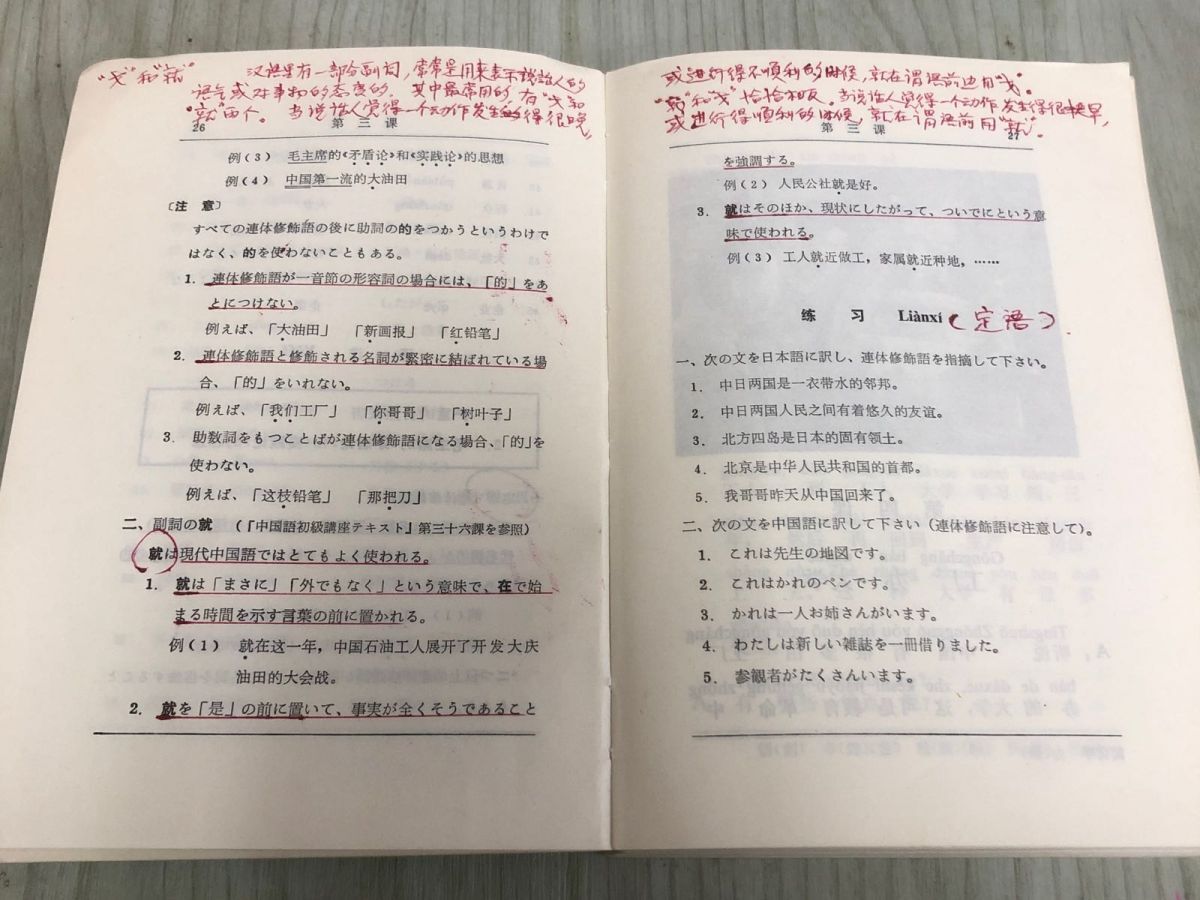 "才"和"就" 汉语里有一部分副词，常常是用来表示说话人的
语气或对事物的态度的，其中最常用的，有"才"和
"就"两个。当说话人觉得一个动作发生的得很晚，
26 第三课
例(3) 毛主席的《矛盾论》和《实践论》的思想
例(4) 中国第一流的大油田
〔注意〕
すべての連体修飾語の後に助詞の的をつかうというわけで
はなく、的を使わないこともある。
1. 連体修飾語が一音節の形容詞の場合には、「的」をあ
とにつけない。
例えば、「大油田」 「新画报」 「红铅笔」
2. 連体修飾語と修飾される名詞が緊密に結ばれている場
合、「的」をいれない。
例えば、「我们工厂」 「你哥哥」 「树叶子」
3. 助数詞をもつことばが連体修飾語になる場合、「的」を
使わない。
例えば、「这枝铅笔」 「那把刀」
二、副詞の就 (『中国語初級講座テキスト』第三十六課を参照)
就は現代中国語ではとてもよく使われる。
1. 就は「まさに」「外でもなく」という意味で、在で始
まる時間を示す言葉の前に置かれる。
例(1) 就在这一年，中国石油工人展开了开发大庆
油田的大会战。
2. 就を「是」の前に置いて、事実が全くそうであること
或进行得不顺利的时候，就在谓语前边用"才"。
"就"和"才"恰恰相反。当说话人觉得一个动作发生得很早，
或进行得顺利的时候，就在谓语前用"就"。
第三课 27
を強調する。
例(2) 人民公社就是好。
3. 就はそのほか、現状にしたがって、ついでにという意
味で使われる。
例(3) 工人就近做工，家属就近种地，……
练习 Liànxí (定语)
一、次の文を日本語に訳し、連体修飾語を指摘して下さい。
1. 中日两国是一衣带水的邻邦。
2. 中日两国人民之间有着悠久的友谊。
3. 北方四岛是日本的固有领土。
4. 北京是中华人民共和国的首都。
5. 我哥哥昨天从中国回来了。
二、次の文を中国語に訳して下さい(連体修飾語に注意して)。
1. これは先生の地図です。
2. これはかれのペンです。
3. かれは一人お姉さんがいます。
4. わたしは新しい雑誌を一冊借りました。
5. 参観者がたくさんいます。